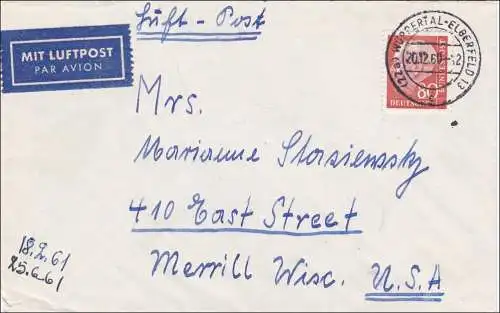 Luft-Post
MIT LUFTPOST
PAR AVION
(22a) WUPPERTAL-ELBERFELD 13
20.12.60
80
DEUTSCHE
Mrs.
Marianne Stasienssky
410 East Street
Merrill Wisc. U.S.A
18.2.61
25.6.61